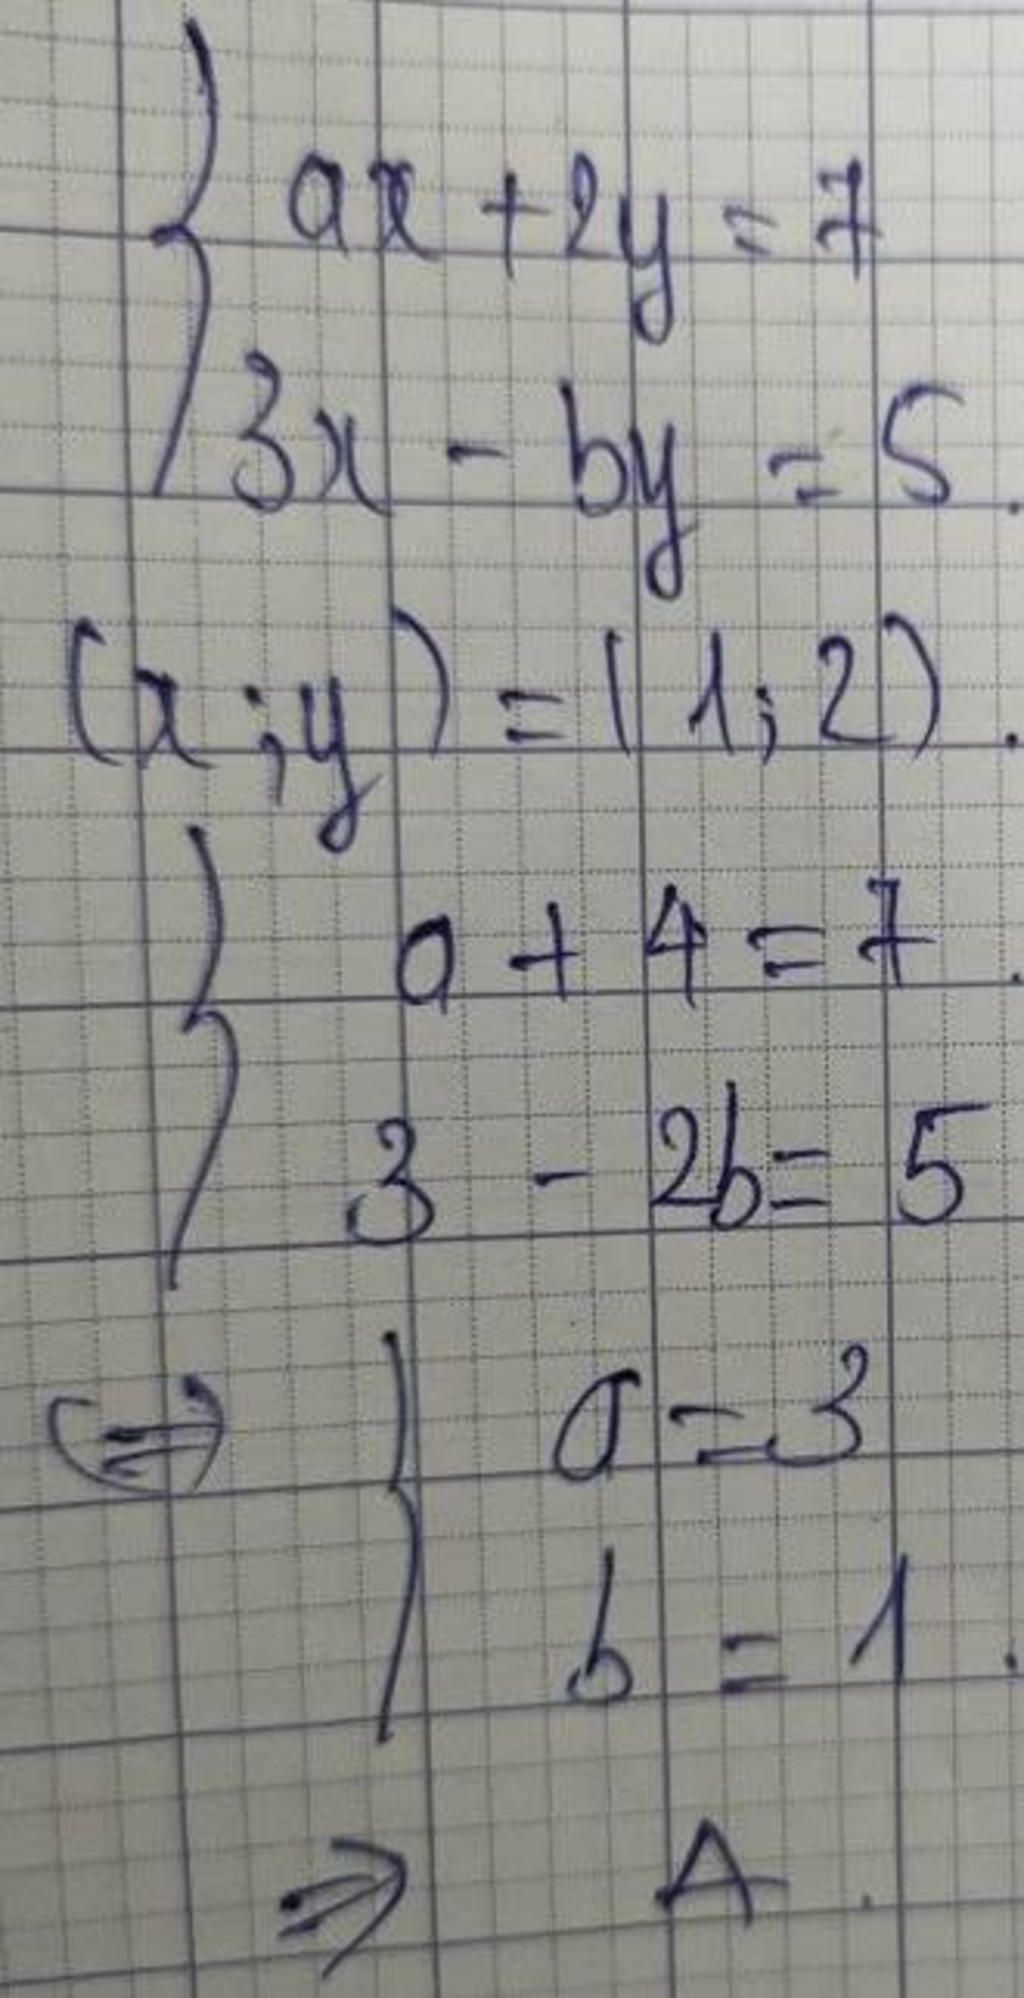 { ax + 2y = 7
3x - by = 5.
(x; y) = (1; 2).
{ a + 4 = 7.
3 - 2b = 5
⇔ { a = 3
b = 1.
⇒ A.